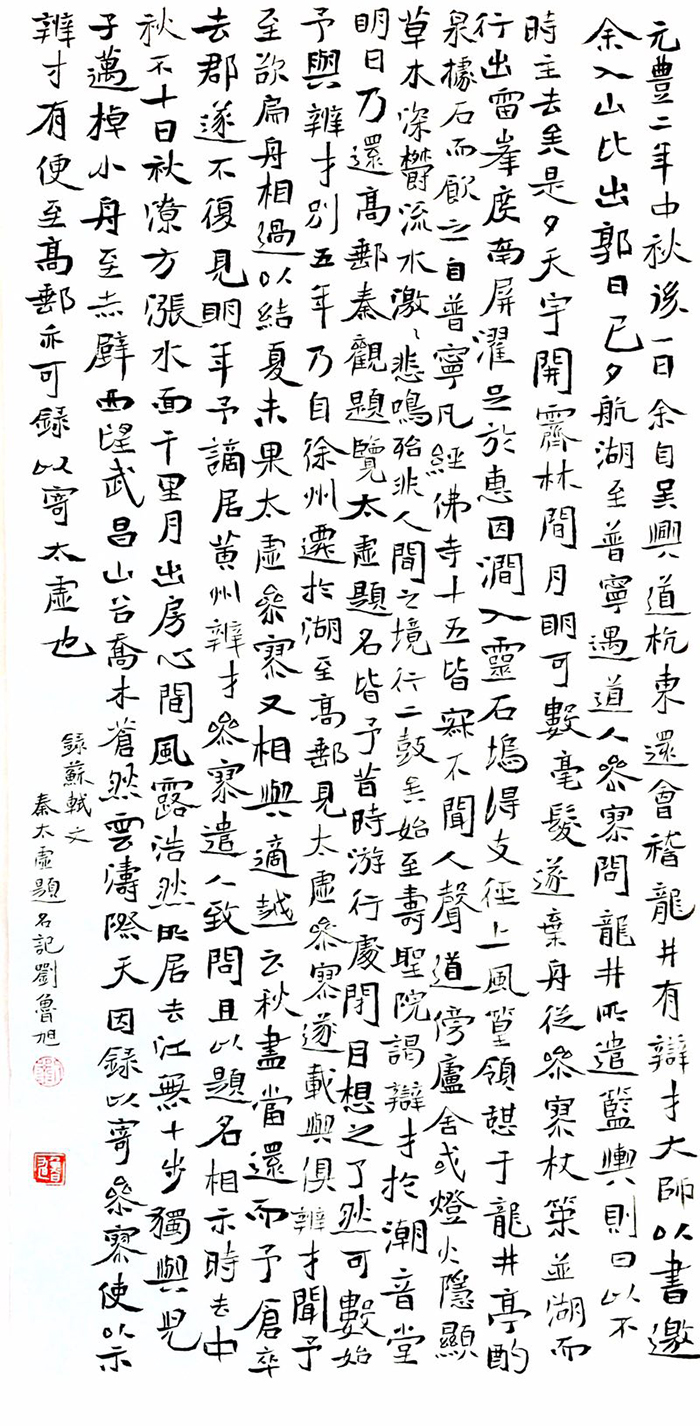 元豐二年中秋後一日余自吳興道杭東還會稽龍井有辯才大師以書邀
余入山比出郭日已夕航湖至普寧遇道人參寥問龍井所遣籃輿則曰以不
時主去矣是夕天宇開霽林間月明可數毫髮遂棄舟從參寥杖策並湖而
行出雷峯度南屏濯足於惠因澗入靈石塢得支徑上風篁領憩于龍井亭酌
泉據石而飲之自普寧凡經佛寺十五皆寂不聞人聲道傍廬舍或燈火隱顯
草木深鬱流水激〻悲鳴殆非人間之境行二鼓矣始至壽聖院謁辯才於潮音堂
明日乃還高郵秦觀題覽太虛題名皆予昔時游行處閉目想之了然可數始
予與辨才別五年乃自徐州遷於湖至高郵見太虛參寥遂載與俱辨才聞予
至欲扁舟相過以結夏未果太虛參寥又相與適越云秋盡當還而予倉卒
去郡遂不復見明年予謫居黃州辨才參寥遣人致問且以題名相示時去中
秋不十日秋潦方漲水面千里月出房心間風露浩然所居去江無十步獨與兒
子邁棹小舟至赤壁西望武昌山谷喬木蒼然雲濤際天因錄以寄參寥使以示
辨才有便至高郵亦可錄以寄太虛也
錄蘇軾文
秦太虛題名記劉魯旭